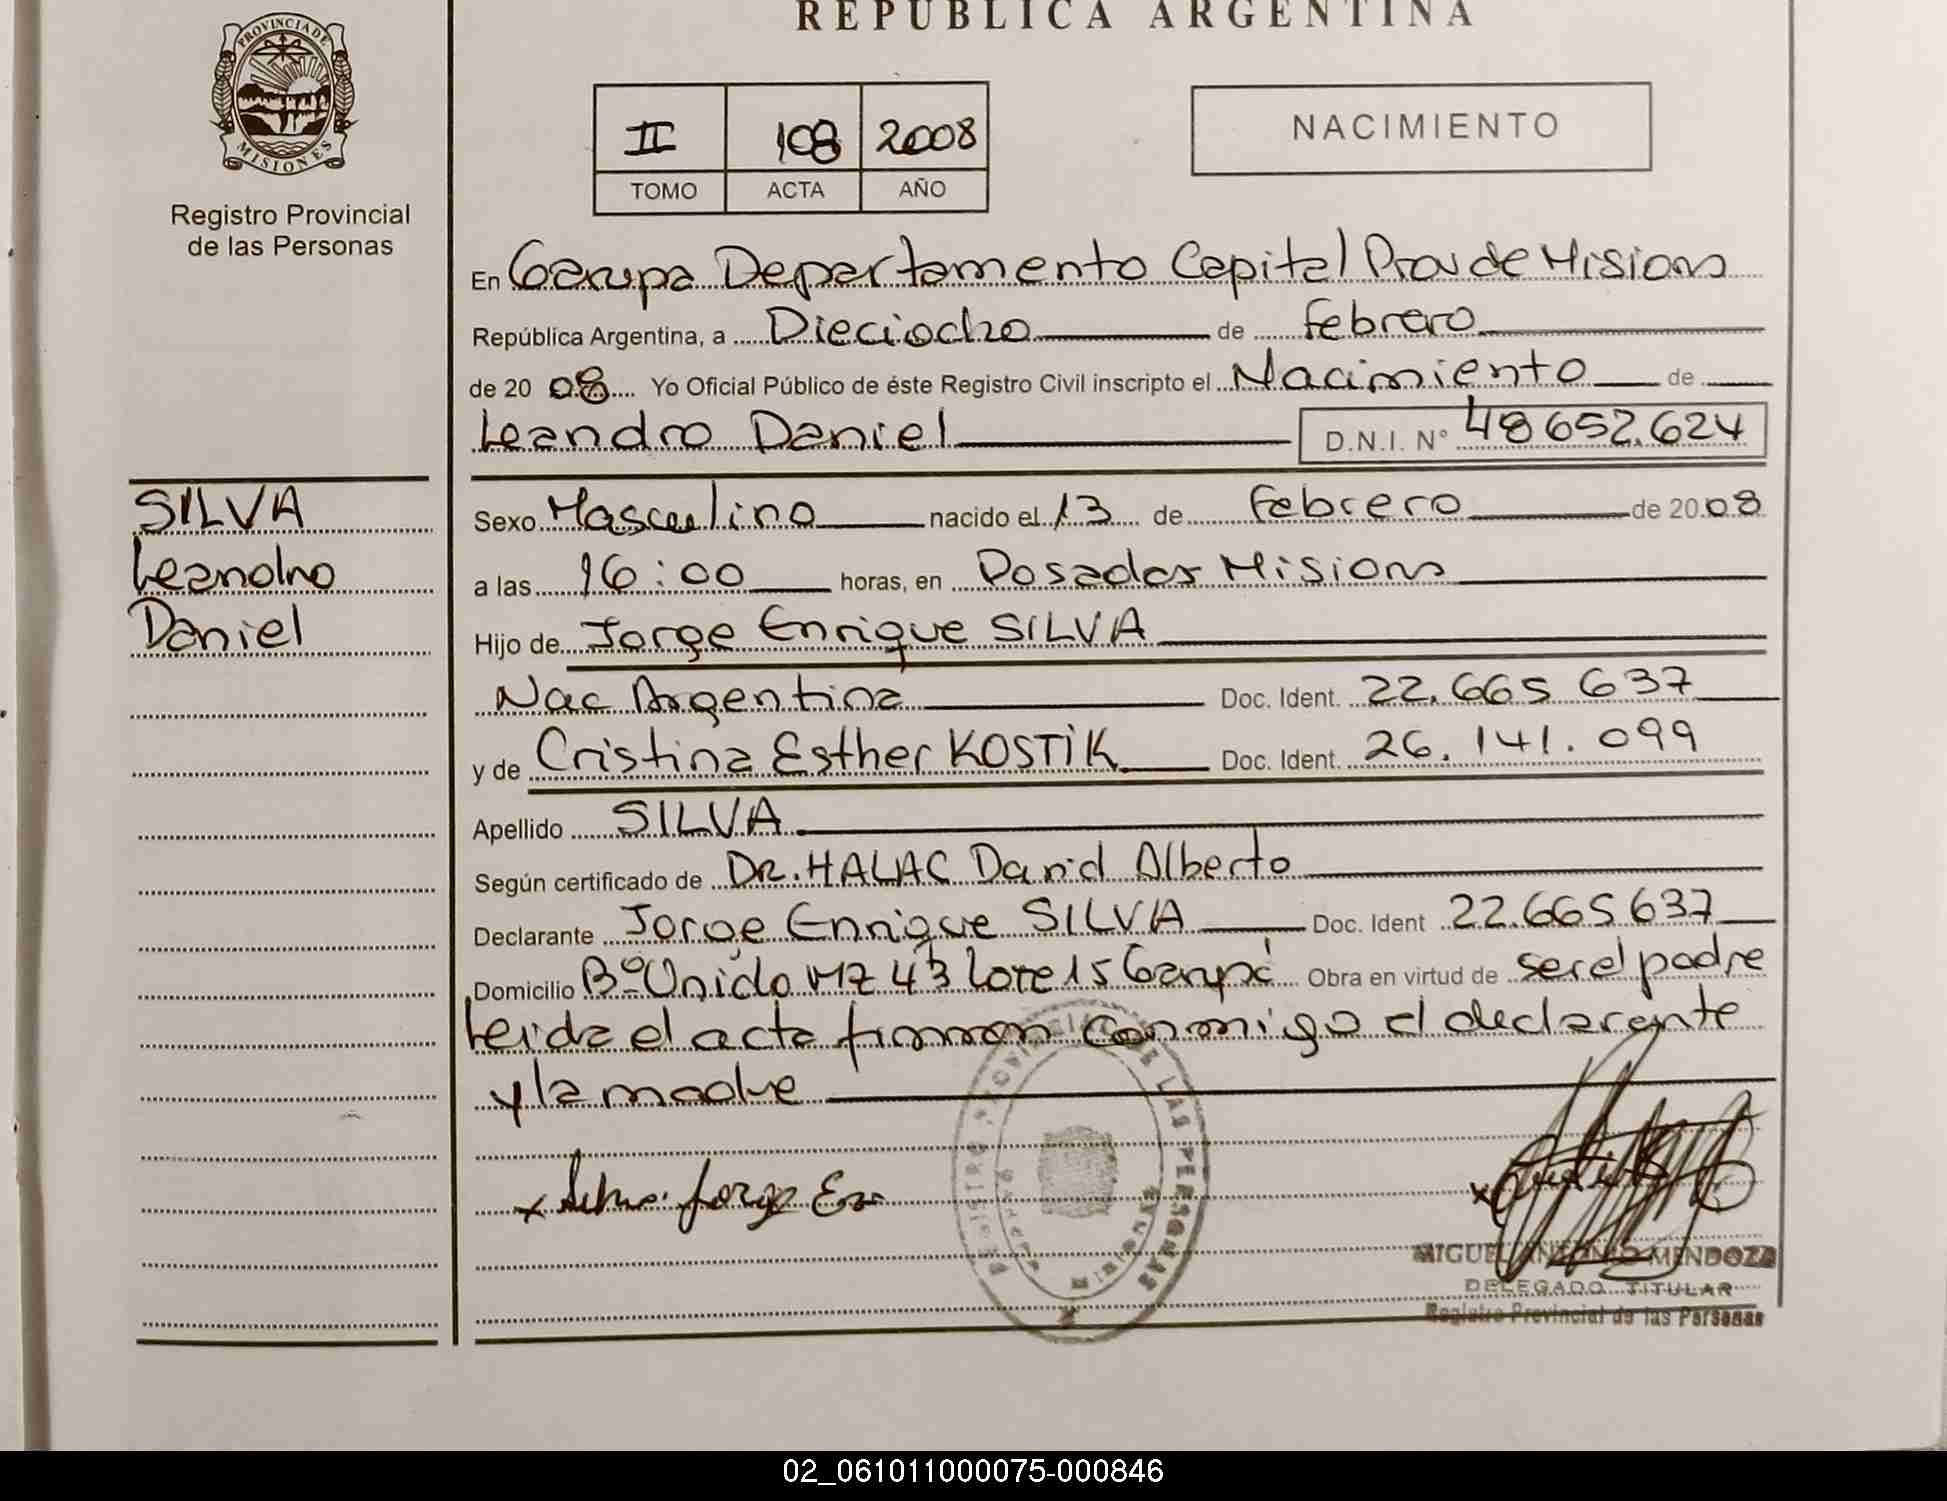 REPUBLICA ARGENTINA
PROVINCIA DE
MISIONES
Registro Provincial
de las Personas
II 108 2008
TOMO ACTA AÑO
NACIMIENTO
En Garupa Departamento Capital Prov de Misiones
República Argentina, a Dieciocho de febrero
de 20 08 Yo Oficial Público de éste Registro Civil inscripto el Nacimiento de
Leandro Daniel D.N.I. N° 48652.624
SILVA
Leandro
Daniel
Sexo Masculino nacido el 13 de febrero de 20 08
a las 16:00 horas, en Posadas Misiones
Hijo de Jorge Enrique SILVA
Nac Argentina Doc. Ident. 22.665 637
y de Cristina Esther KOSTIK Doc. Ident. 26.141.099
Apellido SILVA
Según certificado de DR. HALAC David Alberto
Declarante Jorge Enrique SILVA Doc. Ident 22.665637
Domicilio Bº Unido Mz 43 Lote 15 Garupá Obra en virtud de ser el padre
Leida el acta firman conmigo el declarante
y la madre
x Silva Jorge En
REGISTRO PROVINCIAL DE LAS PERSONAS
MIGUEL ANTONIO MENDOZA
DELEGADO TITULAR
Registro Provincial de las Personas
02_061011000075-000846